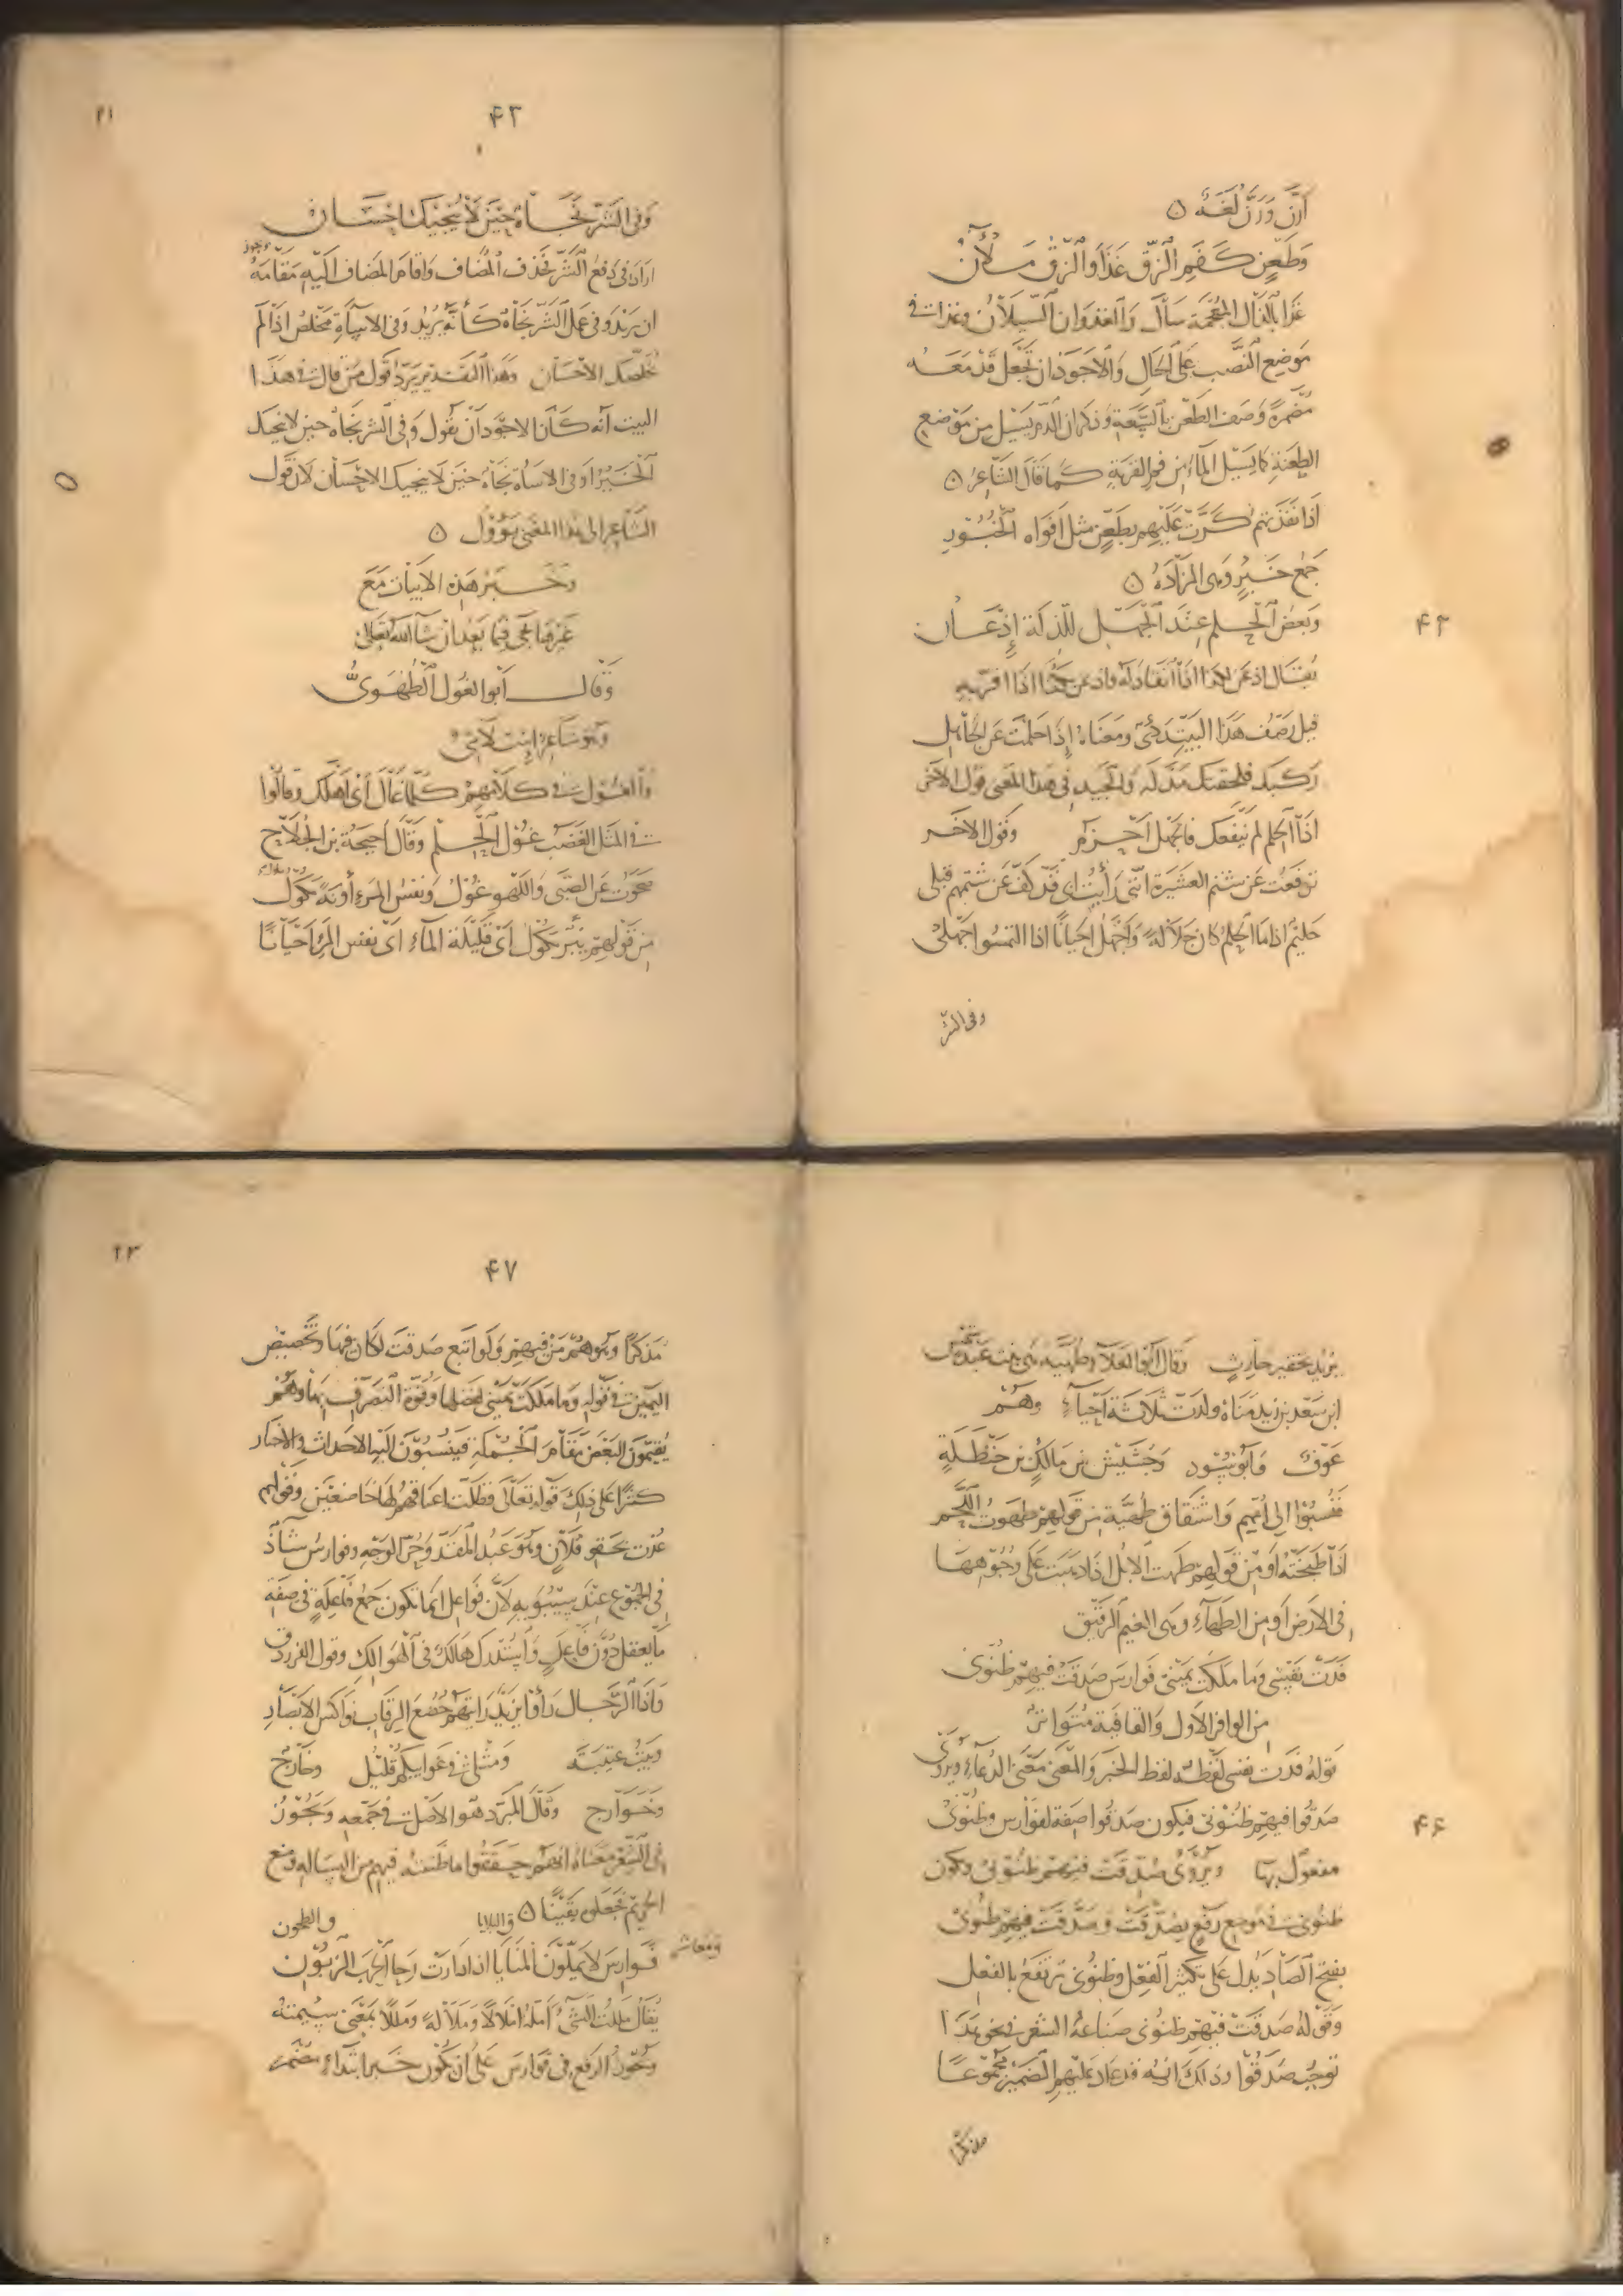 ارن ورز لغة ۞
وَطَعْنٍ كَفَمِ الزِّقِّ غَذَا وَالزِّقُّ مَلْآنُ
غذا بالذال المعجمة سال والغذوان السيلان وغذا في
موضع النصب على الحال والاجود ان تجعل قد معه
مضمرة وصف الطعن بالسعة وذكر ان الدم يسيل من موضع
الطعنة كما يسيل الماء من فم القربة كما قال الشاعر ۞
اذا نفذتهم كرت عليهم بطعن مثل افواه الخبور
جمع خبر وهى المزادة ۞
۴۲
وَبَعْضُ الْحِلْمِ عِنْدَ الْجَهْلِ لِلذِّلَّةِ إِذْعَانُ
يقال اذعن لكذا اذا انقاد له واذعن بكذا اذا اقر به
قيل نصف هذا البيت ومعناه إذا حلمت عن الجاهل
ركبك فلحقتك مذلة والجيد فى هذا المعنى قول الآخر
اذا الحلم لم ينفعك فالجهل احزم وقول الاخر
ترفعت عن شتم العشيرة اننى رأيت ابى قد كف عن شتمهم قبلى
حليم اذا ما الحلم كان جلالة واجهل احيانا اذا التمسوا جهلى
وفى الشر
۲۱
۴۳
وَفِى الشَّرِّ نَجَاةٌ حِينَ لَا يُنْجِيكَ إِحْسَانُ
اراد فى دفع الشر فحذف المضاف واقام المضاف اليه مقامه ويجوز
ان يريد وفى عمل الشر نجاة كأنه يريد وفى الاساءة مخلص اذا لم
يخلصك الاحسان وهذا التقدير يرد قول من قال فى هذا
البيت انه كان الاجود أن يقول وفى الشر نجاة حين لا ينجيك
الخير او فى الاساءة نجاة حين لا ينجيك الاحسان لان قول
الشاعر الى هذا المعنى يؤول ۞
وخبر هذه الابيات مع
غيرها يجى فيما بعد ان شاء الله تعالى
وقال ابو الغول الطهوى
وهو شاعر اسلامى
والغول فى كلامهم كلما غال أى اهلك وقالوا
فى المثل الغضب غول الحلم وقال احيحة بن الجلاح
صحوت عن الصبى واللهو غول ونفس المرء آونة مكول
من قولهم بئر مكول اى قليلة الماء اى نفس المرء احيانا
يريد بخفير حارث وقال ابو العلاء طهية هى بنت عبد شمس
ابن سعد بن زيد مناة ولدت ثلاثة احياء وهم
عوف وابو سود وجشيش بن مالك بن حنظلة
فنسبوا الى امهم واشتقاق طهية من قولهم طهوت اللحم
اذا طبخته او من قولهم طهت الابل اذا ذهبت على وجوهها
فى الارض او من الطهاء وهى الغيم الرقيق
فَدَتْ نَفْسِى وَمَا مَلَكَتْ يَمِينِى فَوَارِسَ صَدَّقَتْ فِيهِمْ ظُنُونِى
من الوافر الاول والقافية متواتر
قوله فدت نفسى لفظه لفظ الخبر والمعنى معنى الدعاء ويروى
۴۶
صدقوا فيهم ظنونى فيكون صدقوا صفة لفوارس وظنونى
مفعول بها ويروى صدقت فيهم ظنونى وتكون
ظنونى فى موضع رفع بصدقت وصدقت فيهم ظنونى
بفتح الصاد يدل على تكثير الفعل وظنونى ترتفع بالفعل
وقوله صدقت فيهم ظنونى صناعة الشعر فى نحو هذا
توجب صدقوا وذلك انه قد عاد عليهم الضمير مجموعا
مذكرا
۲۳
۴۷
مذكرا وهو هم من فيهم ولو اتبع صدقت لكان فيها وتخصيص
اليمين فى قوله وما ملكت يمينى لفضلها وقوة التصرف بها وهم
يقيمون البعض مقام الجملة فينسبون اليه الاحداث والاخبار
كثيرا على ذلك قوله تعالى فظلت اعناقهم لها خاضعين وقولهم
عذت بحقو فلان وهو عبد المقذ وحر الوجه وفوارس شاذ
فى الجموع عند سيبويه لان فواعل انما تكون جمع فاعلة فى صفة
ما يعقل دون فاعل واستدل هالك فى الهوالك وقول الفرزدق
واذا الرجال رأوا يزيد رايتهم خضع الرقاب نواكس الابصار
وبيت عتيبة ومثلى فى غوايبكم قليل وخارج
وخوارج وقال المبرد هو الاصل فى جمعه ويجوز
فى الشعر معناه انهم حققوا ما ظننته فيهم من البسالة ومنع
الحريم فجعلوه يقينا ۞ والبلايا والطحون
فَوَارِسَ لَا يَمَلُّونَ الْمَنَايَا إِذَا دَارَتْ رَحَا الْحَرْبِ الزَّبُونِ
يقال مللت الشئ أمله املالا وملالة ومللا بمعنى سئمته
ويجوز الرفع فى فوارس على ان يكون خبر ابتداء مضمر